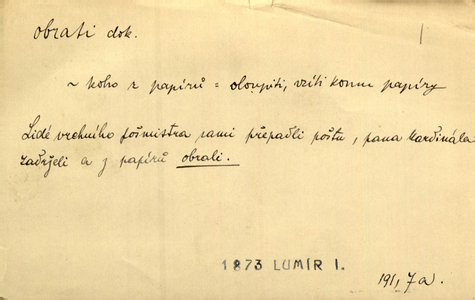 obrati dok.
~ koho z papírů = oloupiti, vzíti komu papíry
Lidé vrchního pošmistra sami přepadli poštu, pana kardinála
zadrželi a z papírů obrali.
1873 LUMÍR I.
191, 7a.